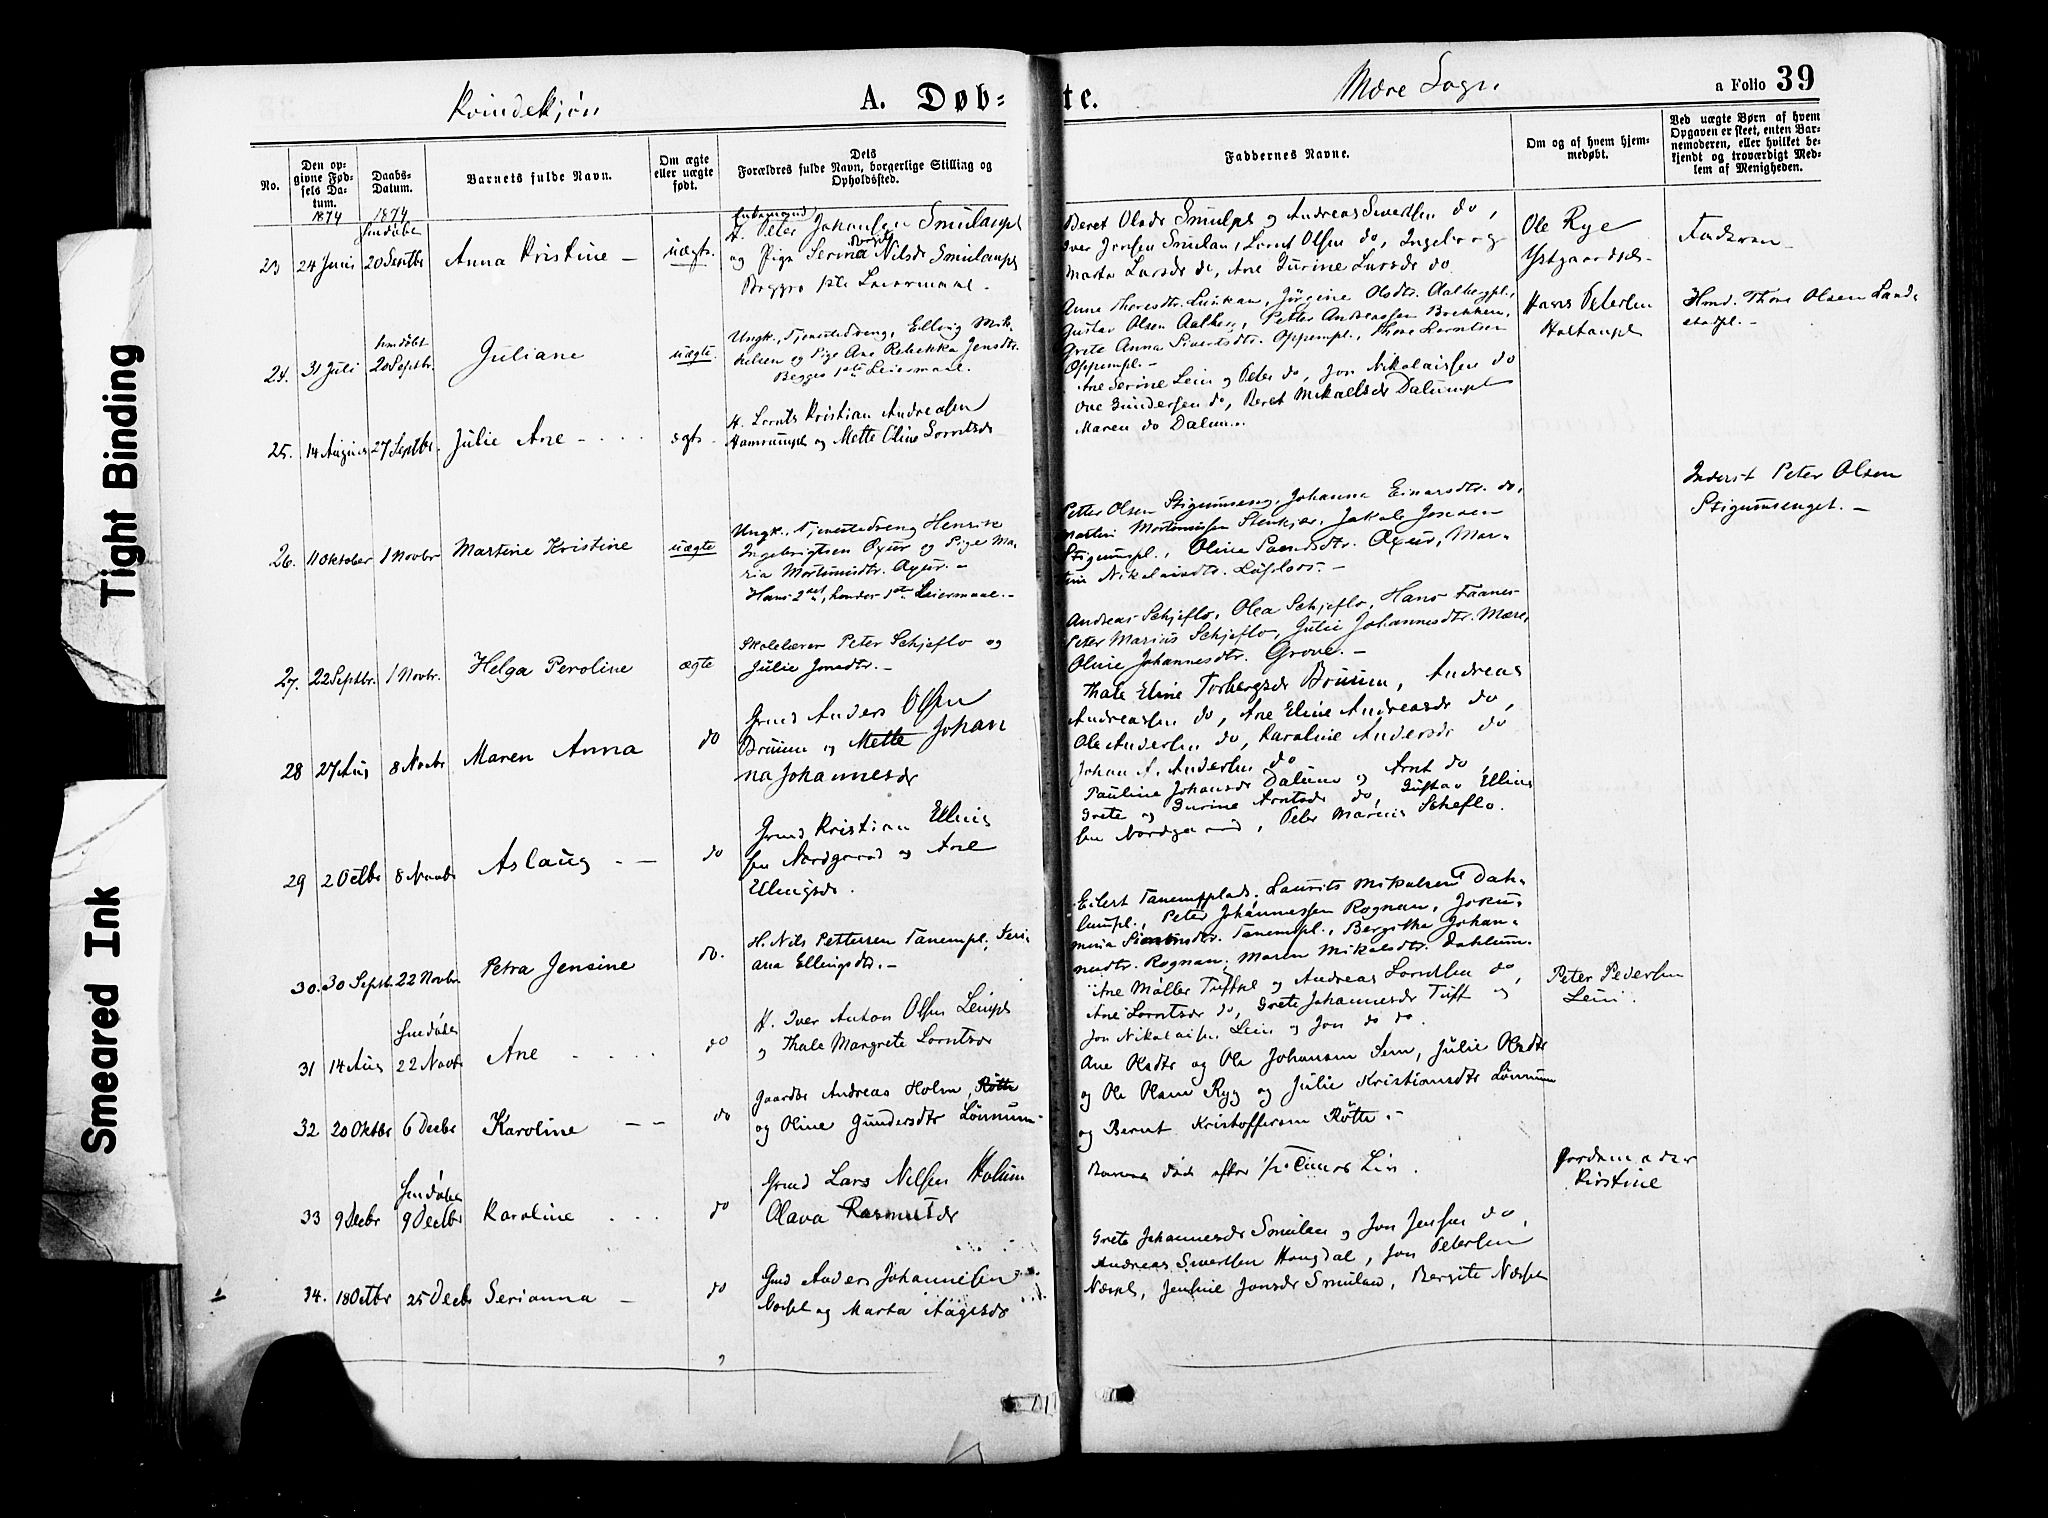 Tight Binding
Smeared Ink
Kvindekjøn
A. Døb=
te.
Mære Sogn
a Folio 39
No.
Den op-
givne Fød-
sels Da-
tum.
1874
Daabs-
Datum.
1874
Barnets fulde Navn.
Om ægte
eller uægte
født.
Dets
Forældres fulde Navn, borgerlige Stilling og
Opholdssted.
Faddernes Navne.
Om og af hvem hjem-
medøbt.
Ved uægte Børn af hvem
Opgaven er skeet, enten Bar-
nemoderen, eller hvilket be-
kjendt og troværdigt Med-
lem af Menigheden.
23 24 Juni
hmdøbt
20 Septbr
Anna Kristine —
uægte.
H. Peter Johansen Smulanpl
og Pige Serina Nilsdr Smulanpl
Begges 1ste Leiermaal.
Beret Olsdr Smulpl og Andreas Sivertsen do,
Iver Jensen Smulan, Lornt Olsen do, Ingeborg
Marta Larsdr do, Ane Gurine Larsdr do
Ole Rye
Ystgaardspl-
Faderen
24. 31 Juli
hmdøbt
20 Septbr.
Juliane
uægte.
Ungk., Tjenestedreng, Elling Mik-
kelsen og Pige Ane Rebekka Jensdtr.
Begges 1ste Leiermaal.
Anne Thoresdtr. Lunkan, Jørgine Olsdtr. Aalbergpl.,
Gustav Olsen Aalberg, Petter Andreassen Brekken,
Grete Anna Sivertsdtr. Oppempl., Thore Lorntsen
Oppempl.-
Hans Petersen
Hostaupl
Hmd. Thore Olsen Land-
stadpl.-
25. 14 August 27 Septbr.
Julie Ane - . . .
ægte
H. Lornts Kristian Andreasen
Hamrumpl og Mette Oline Lorntsdr
Ane Serine Lein og Peter do, Jon Nikolaissen do
Ove Gundersen do, Beret Mikaelsdr Dalumpl
Maren do Dalum.
26. 11 Oktober 1 Novbr
Martine Kristine
uægte
Ungk. Tjenestedreng Henrik
Ingebrigtsen Oxur og Pige Ma-
ria Mortensdtr. Oxur.-
Hans 2det, hendes 1ste Leiermaal.-
Petter Olsen Stigumseng, Johanna Einarsdtr. do,
Martin Mortensen Stenkjær, Jakob Jensen
Stigumspl., Oline Oxur, Mar-
tin Nikolaisdtr.
Inderst Peter Olsen
Stigumsenget.-
27. 22 Septbr. 1 Novbr.
Helga Peroline
ægte
Skolelærer Peter Schjeflo og
Julie Jonsdtr.-
Andreas Schjeflo, Olea Schjeflo, Hans Faanes
Peter Marius Schjeflo, Julie Johannesdtr. Mære,
Oline Johannesdtr. Grove.-
28 27 Aug 8 Novbr
Maren Anna
do
Grmd Anders Olsen
Bruum og Mette Johan
na Johannesdr
Thale Eline Torbergsdr Bruum, Andreas
Andreassen do, Ane Eline Andreasdr do,
Ole Andersen do, Karoline Andersdr do
Johan A. Andersen do
29 2 Octbr 8 Novbr
Aslaug - —
do
Grmd Kristian Ellins
sen Nordgaard og Ane
Ellingsdr.
Pauline Johansdr Dalum og Arnt do
Grete og Gurine Arntsdr do, Gustav Ellins
sen Nordgaard, Peter Marius Scheflo.
30. 30 Septbr. 22 Novbr.
Petra Jensine
do.
H. Nils Pettersen Tanempl, Seri-
ana Ellingsdtr.-
Eilert Tanemsplads, Laurits Mikalsen Dah-
lumpl., Peter Johannessen Rognan,
Tanempl., Bergitha Johan-
nesdtr. Rognan, Maren Mikalsdtr. Dahlum.
31 14 Aug
hmdøbt
22 Novbr
Ane - . . . .
do
H. Iver Anton Olsen Leinpl
og Thale Margrete Lorntsdr
Ane Møller Tuftpl og Andreas Lorntsen do,
Ane Lorntsdr do, Grete Johannesdr Tuft og
Jon Nikolaisen Lein og Jon do do.
Peter Pedersen
Lein.
32 20 Oktbr 6 Decbr
Karoline — —
do
Gaardbr Andreas Holm, Røtte
og Oline Gundersdtr Lønnum-
Ane Olsdtr og Ole Johansen Sem, Julie Olsdtr
og Ole Olsen Ryg og Julie Kristiansdtr Lønnum
og Bernt Kristoffersen Røtte.-
33 9 Decbr
hmdøbt
9 Decbr
Karoline . . .
do
Grmd Lars Nilsen Holum
Olava Rasmusdr
Barnet døde efter 1/2 Times Liv.
Jordemoder
Kirstine
34. 18 Octbr 25 Decbr
Serianna —
do
Gmd Anders Johannesen
Næspl og Marta Aagesdr
Grete Johannesdr Smulan og Jon Jensen do,
Andreas Sivertsen Haugdal, Jon Petersen
Næspl, Jensine Jonsdr Smulan, Bergite Næspl